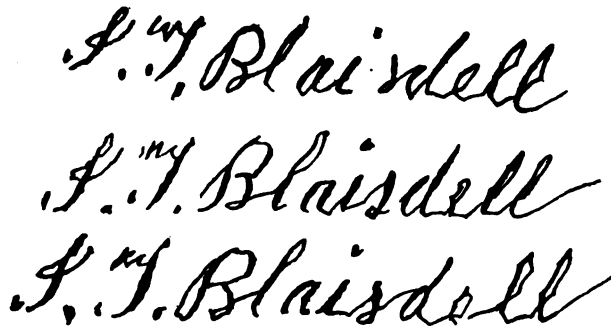 S. T. Blaisdell
S. T. Blaisdell
S. T. Blaisdell